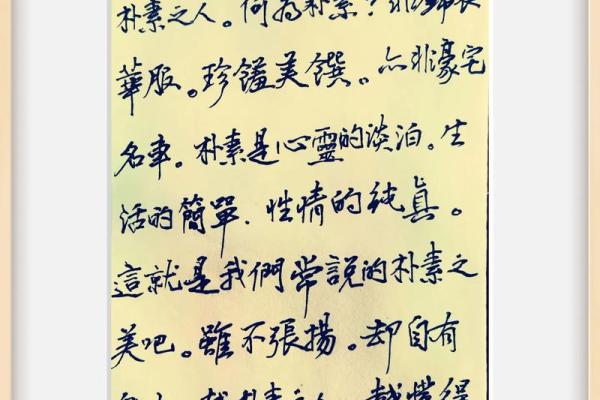 朴素之人。何为朴素？非錦衣
華服。珍馐美饌。亦非豪宅
名車。朴素是心靈的淡泊。生
活的簡單、性情的純真。
這就是我們常説的朴素之
美吧。雖不張揚。却自有
朴素之人 懂得